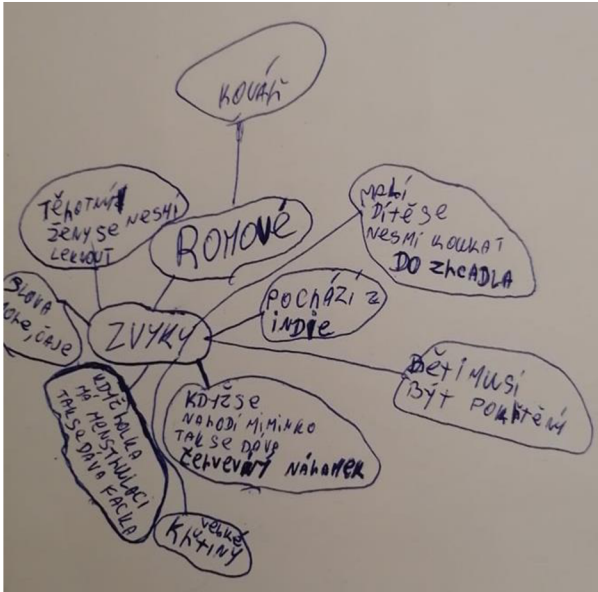 KOVÁŘI
TĚHOTNÝ
ŽENY SE NESMÍ
LEKNOUT
ROMOVÉ
MALÍ
DÍTĚ SE
NESMÍ KOUKAT
DO ZRCADLA
POCHÁZÍ Z
INDIE
ZVYKY
SLOVA
ČAJE
DĚTI MUSÍ
BÝT POKŘTĚNÝ
KDYŽ SE
NARODÍ MIMINKO
TAK SE DÁVÁ
ČERVENÝ NÁRAMEK
KDYŽ HOLKA
MÁ MENSTRUACI
TAK SE DÁVÁ FACKA
VELKÉ
KŘTINY